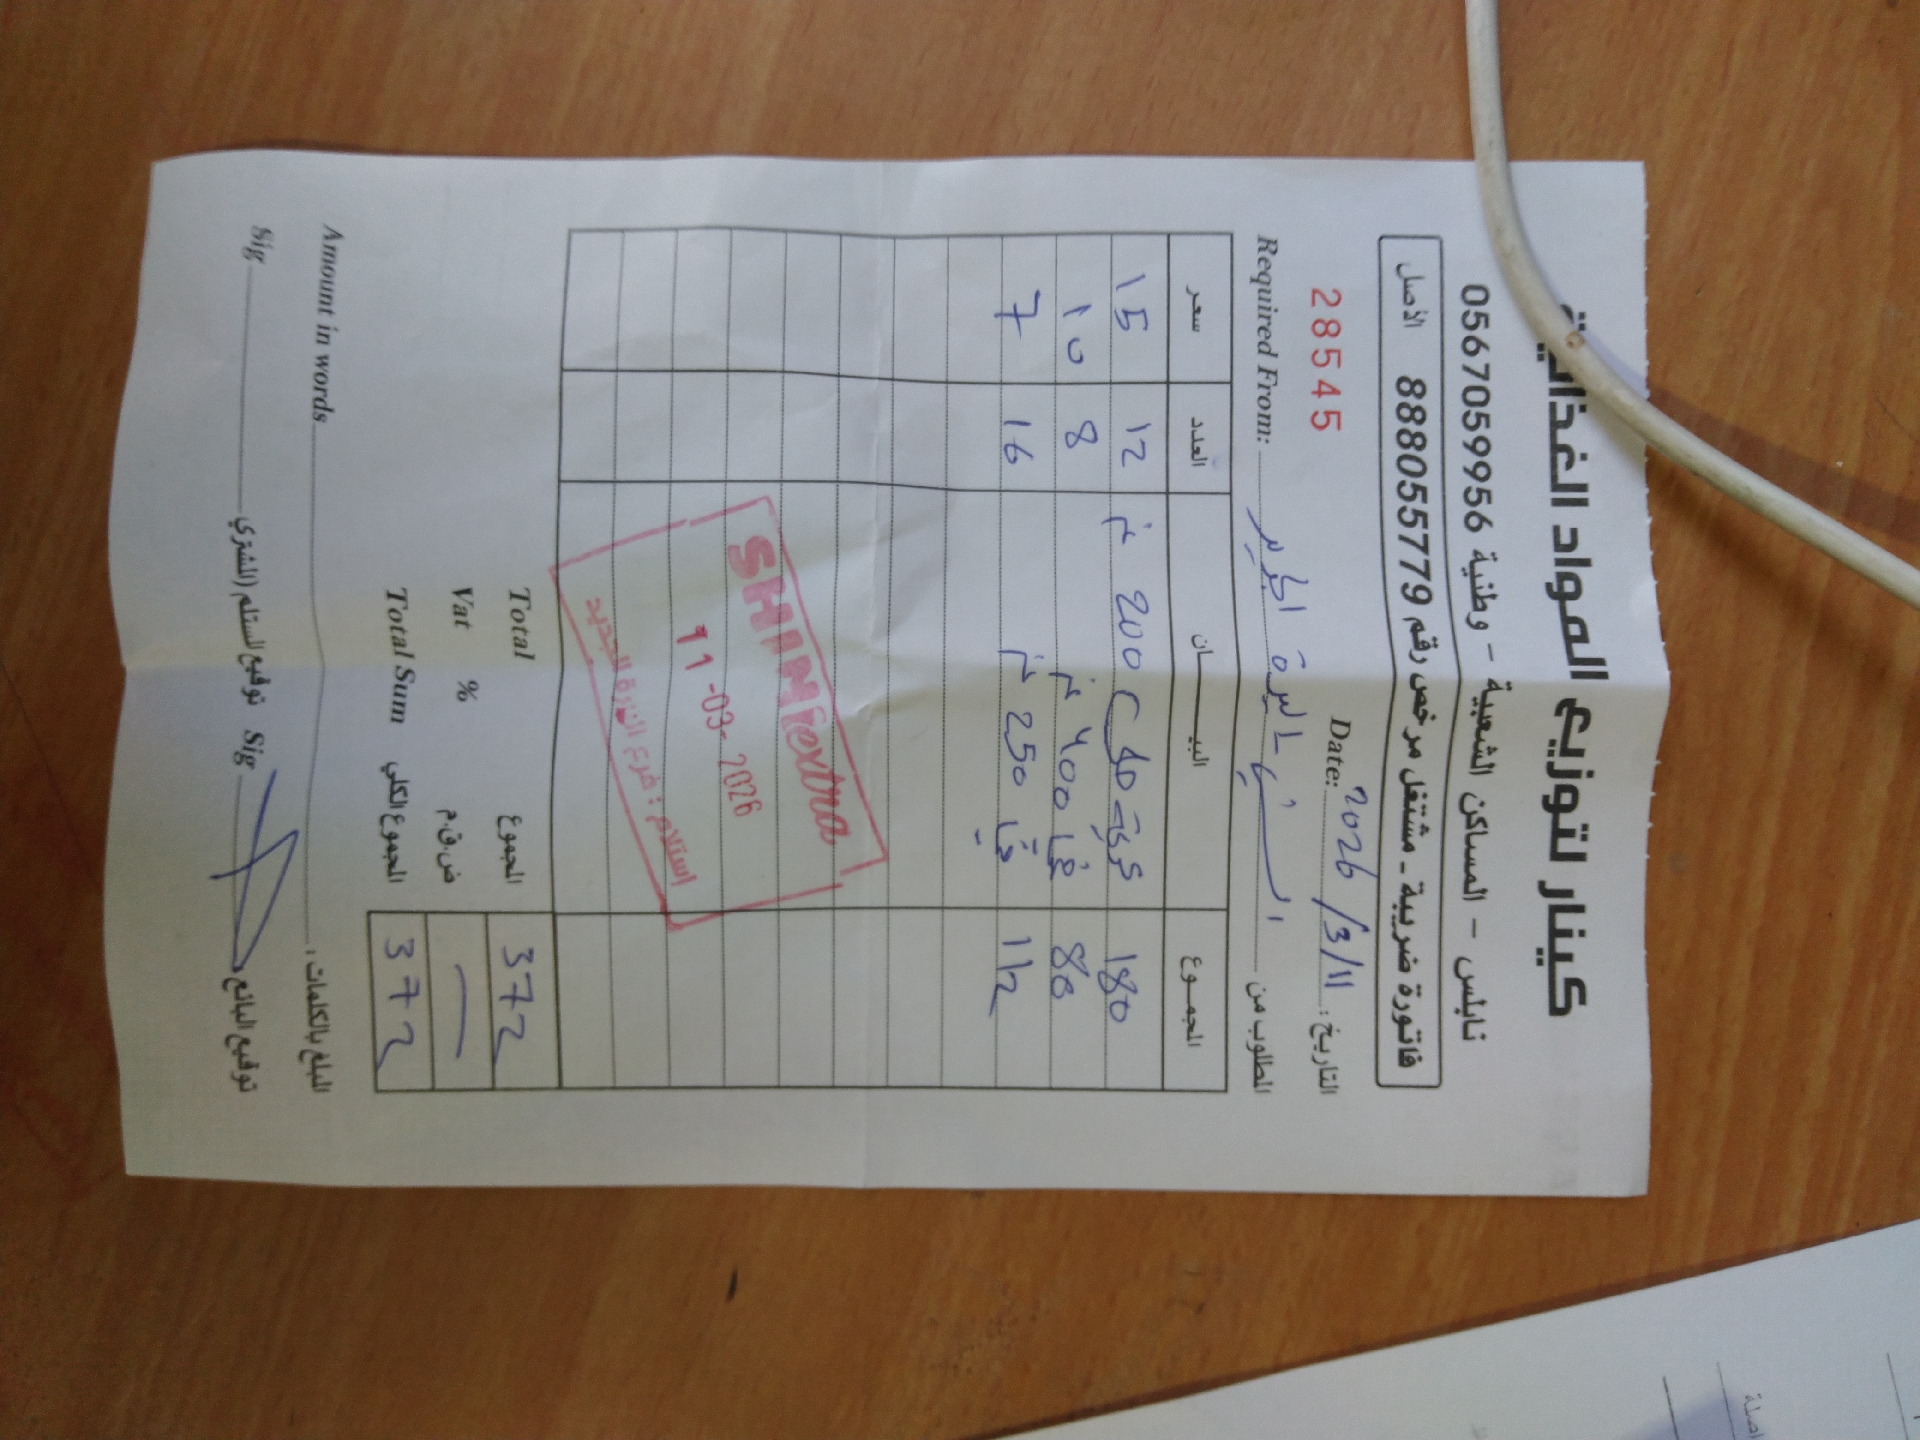 كينار لتوزيع المواد الغذائية
نابلس - المساكن الشعبية - وطنية 0567059956
فاتورة ضريبة - مشتغل مرخص رقم 888055779 الأصل
28545
Date: 2026/3/11 التاريخ:
Required From: المطلوب من
سعر العدد البيــــان المجموع
15 12 200 180
10 8 400 80
7 16 250 112
SHINI extra
11-03-2026
استلام: فرع البيرة الجديد
Total المجموع 372
Vat % ض.ق.م
Total Sum المجموع الكلي 372
Amount in words المبلغ بالكلمات:
Sig توقيع المستلم (المشتري) Sig توقيع البائع